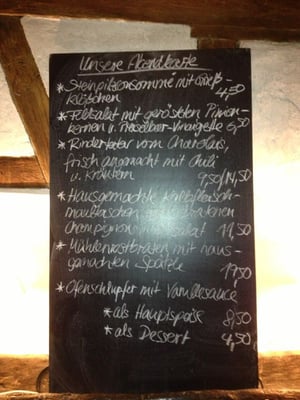 Unsere Abendkarte
* Steinpilzconsommé mit Grieß-
klößchen 4,50
* Feldsalat mit gerösteten Pinien-
kernen u. Vinaigrette 6,50
* Rindertatar vom Charolais,
frisch angemacht mit Chili
u. Kräutern 9,50/14,50
* Hausgemachte Kalbfleisch-
maultaschen gebratenen
Champignons salat 11,50
* Mühlenrostbraten mit haus-
gemachten Spätzle
17,50
* Ofenschlupfer mit Vanillesauce
* als Hauptspeise 8,50
* als Dessert 4,50